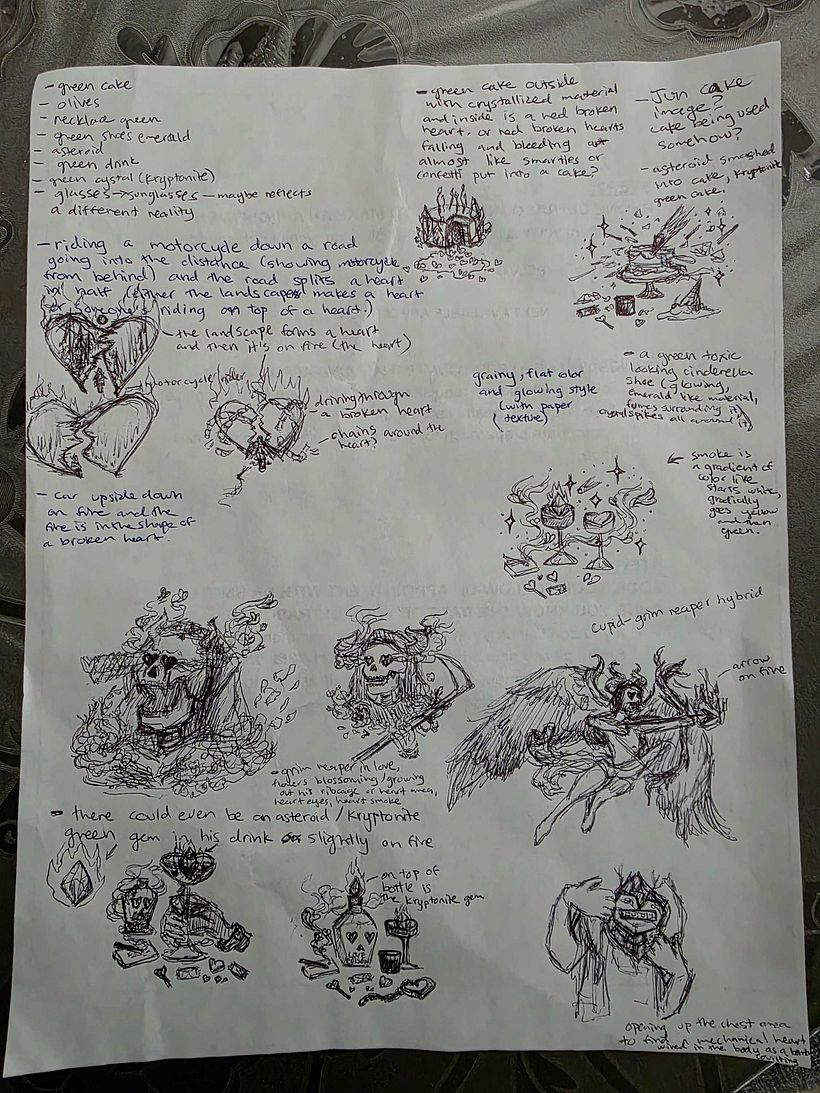 - green cake
- olives
- necklace green
- green shoes emerald
- asteroid
- green drink
- green cystal (kryptonite)
- glasses → sunglasses — maybe reflects
a different reality
- green cake outside
with crystallized material
and inside is a red broken
heart. or red broken hearts
falling and bleeding out
almost like smarties or
confetti put into a cake?
- Jun cake
image?
cake being used
somehow?
- asteroid smashed
into cake, kryptonite
green cake.
- riding a motorcycle down a road
going into the distance (showing motorcycle
from behind) and the road splits a heart
in half (either the landscape makes a heart
or someone's riding on top of a heart.)
the landscape forms a heart
and then it's on fire (the heart)
motorcycle rider
driving through
a broken heart
- chains around the
heart?
grainy, flat color
and glowing style
(with paper
texture)
- a green toxic
looking cinderella
shoe (glowing,
emerald like material,
fumes surrounding it)
and spikes all around it)
← smoke is
a gradient of
color like
starts white,
gradually
goes yellow
and then
green.
- car upside down
on fire and the
fire is in the shape of
a broken heart.
cupid-grim reaper hybrid
- arrow
on fire
- grim reaper in love,
flowers blossoming/growing
out his ribcage or heart area,
heart eyes, heart smoke
- there could even be an asteroid / kryptonite
green gem in his drink slightly on fire
- on top of
bottle is
the kryptonite gem
opening up the chest area
to find mechanical heart
wired in the body as a